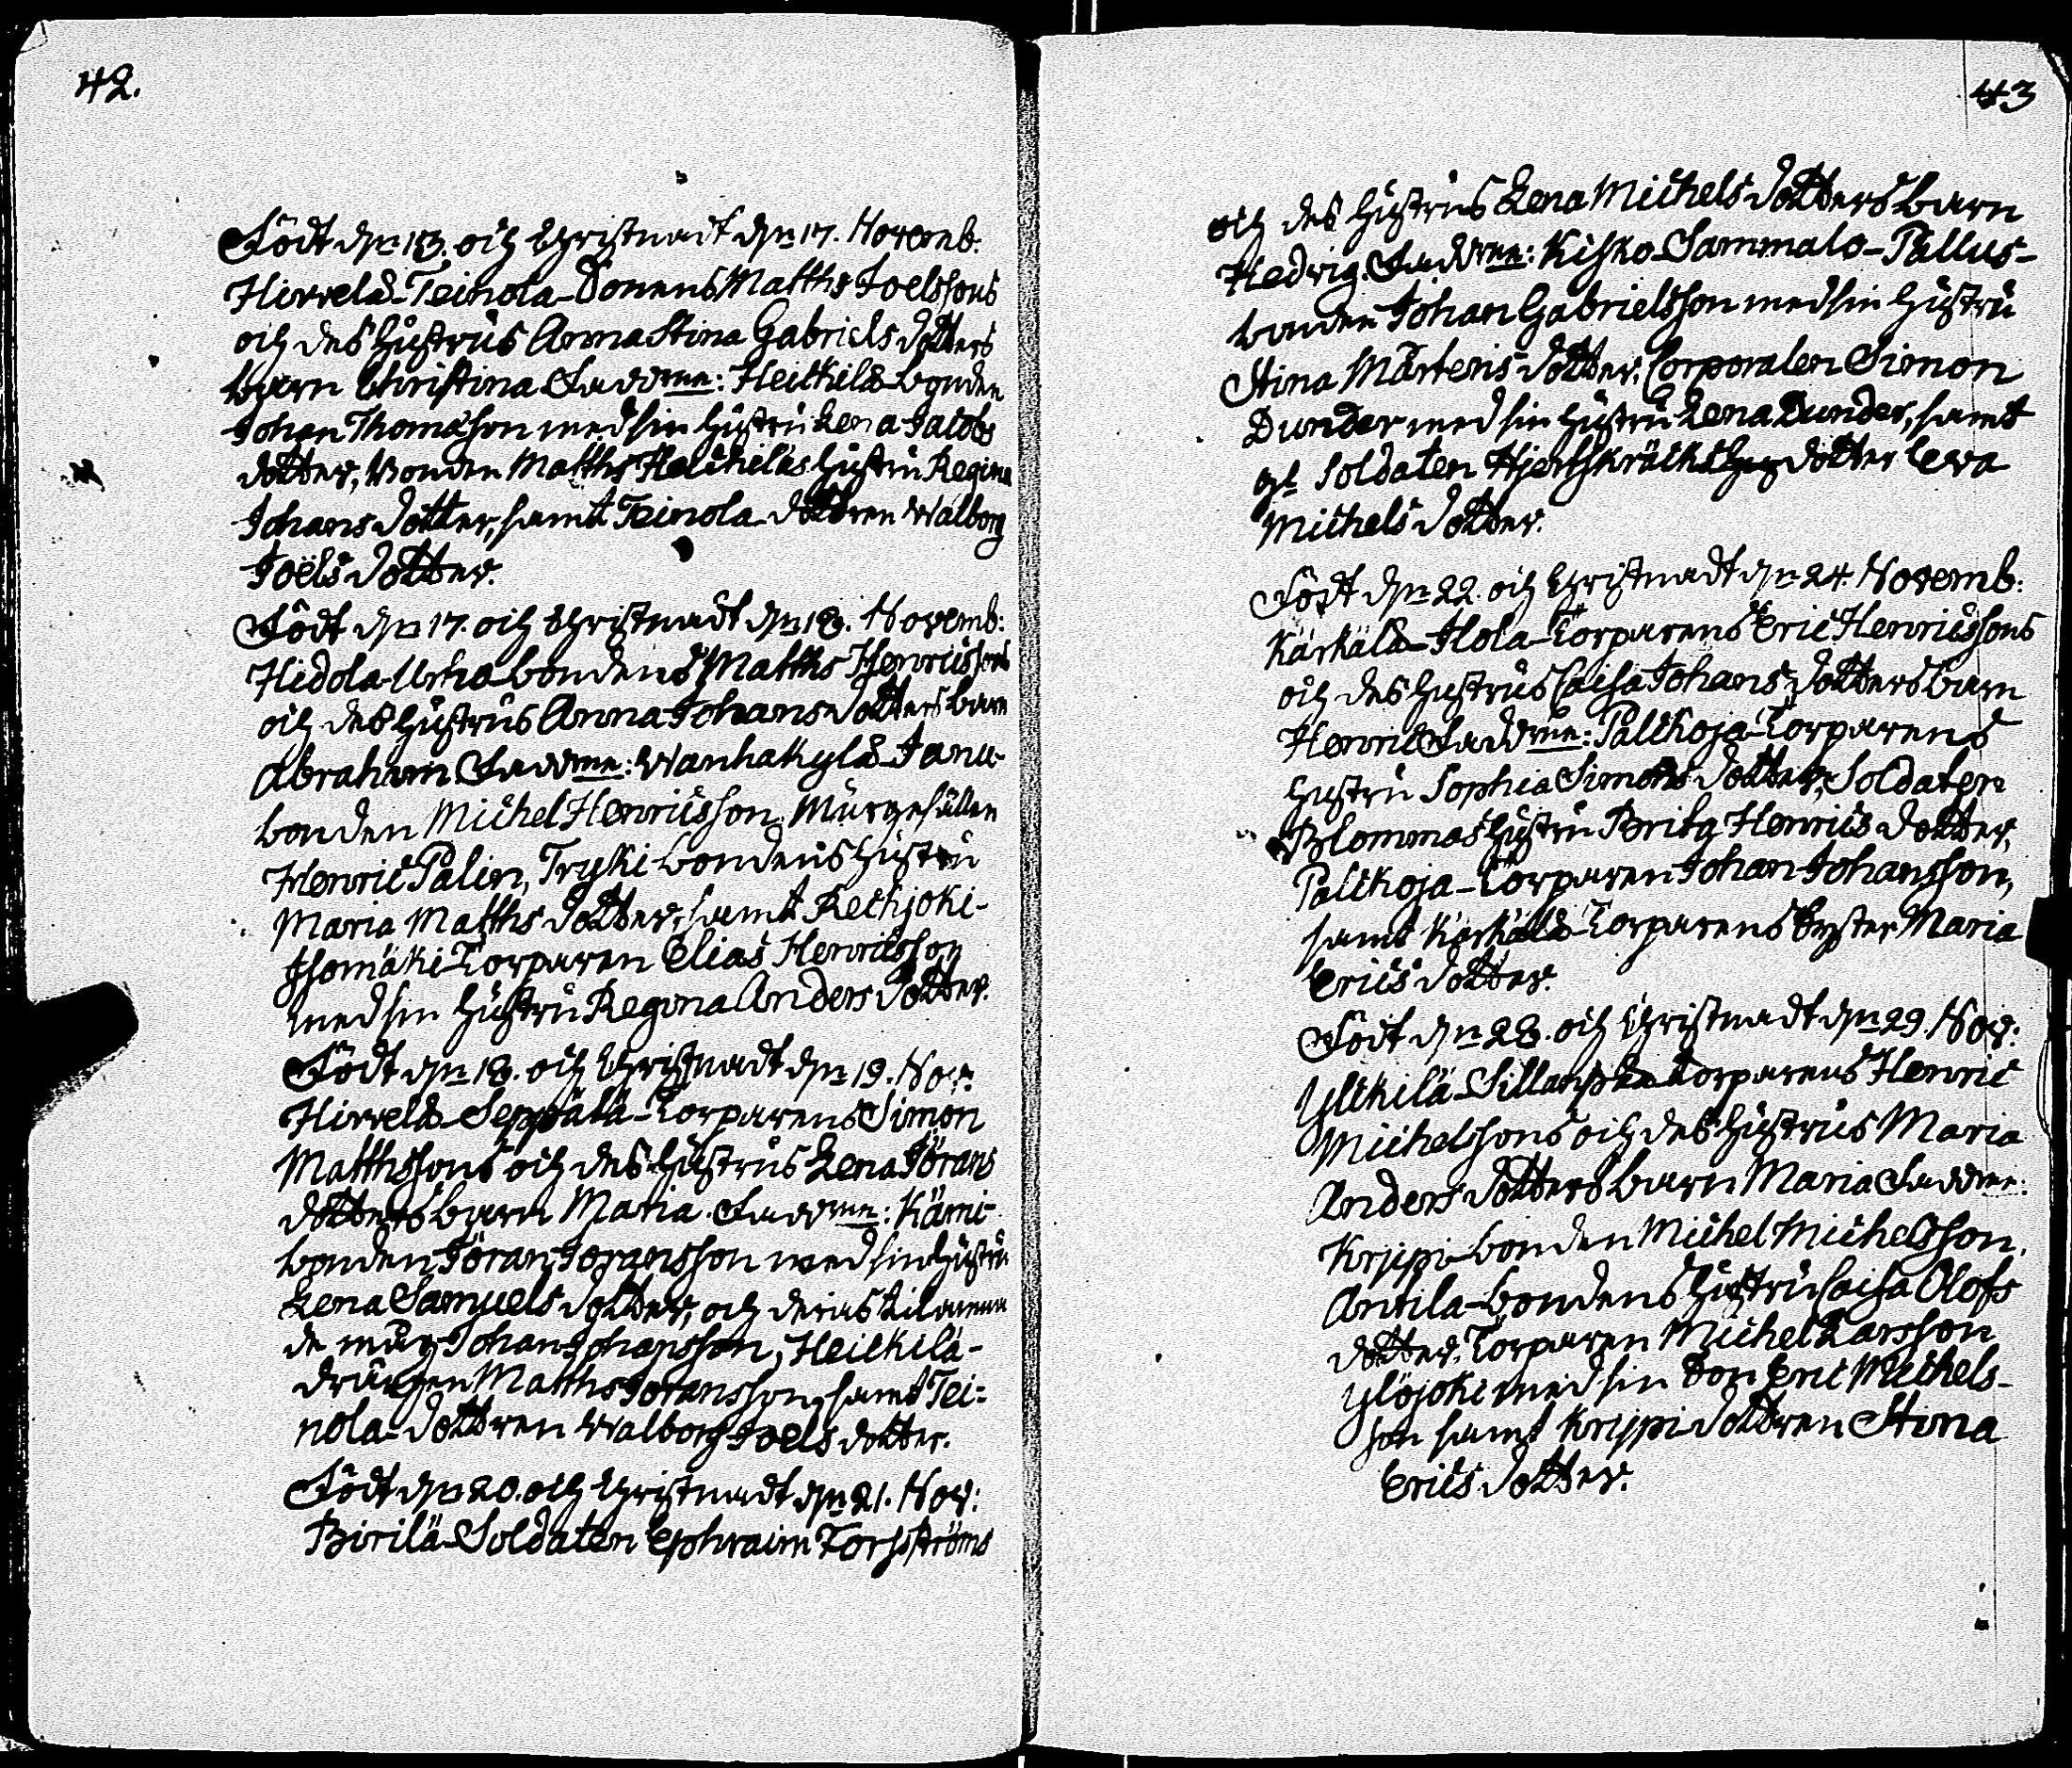 42.
Födt dn 13. och Christnadt dn 17. Novemb.
Hirvelä-Teinola-Sonens Matths Joelssons
och des hustrus Anna Stina Gabriels dotters
barn Christina Faddrne: Heickilä bonden
Johan Thomasson med sin hustru Lena Jacobs
dotter, Bonden Matths Heickiläs hustru Regina
Johans dotter, samt Teinola-dottren Walborg
Joëls dotter.
Födt dn 17. och Christnadt dn 18. Novemb:
Hidola-Urha bondens Matths Henricssons
och des hustrus Anna Johans dotters barn
Abraham Faddrne: Wanhakylä-Janu-
bonden Michel Henricsson, Murgesällen
Henric Palin, Tryki bondens hustru
Maria Matths dotter, samt Reckjoki-
Isomäki-Torparen Elias Henricsson
med sin hustru Regina Anders dotter.
Födt dn 18. och Christnadt dn 19. Nov.
Hirvelä-Seppälä-Torparens Simon
Matthssons och des hustrus Lena Jörans
dotters barn Maria. Faddrne: Kämi-
bonden Jöran Joransson med sin hustru
Lena Samuels dotter, och deras tilämnan
de måg Johan Johansson, Heickilä-
drängen Matths Joransson, samt Tei-
nola-dottren Walborg Joels dotter.
Födt dn 20. och Christnadt dn 21. Nov:
Birilä-Soldaten Ephraim Forsströms
43
och des hustrus Lena Michels dotters barn
Hedvig. Faddrne: Kisko-Sammalo-Pallus-
bonden Johan Gabrielsson med sin hustru
Stina Mårtens dotter, Corporalen Simon
Dunder med sin hustru Lena Dunder, samt
gl. Soldaten Hjertskräcks dotter Ewa
Michels dotter.
Födt dn 22. och Christnadt dn 24. Novemb:
Kärkälä-Hola-Torparens Eric Henricssons
och des hustrus Caisa Johans dotters barn
Henric Faddrne: Palikoja-Torparens
hustru Sophia Simons dotter, Soldaten
Blommas hustru Brita Henrics dotter,
Palikoja-Torparen Johan Johansson,
samt Kärkälä-Torparens Syster Maria
Erics dotter.
Födt dn 28. och Christnadt dn 29. Nov:
Ylikilä-Sillanpää Torparens Henric
Michelssons och des hustrus Maria
Anders dotters barn Maria Faddrne:
Krjppi-bonden Michel Michelsson,
Antila-bondens hustru Caisa Olofs
dotter, Torparen Michel Larsson
Ylöjoki med sin Son Eric Michels-
son samt Krippi dottren Stina
Erics dotter.